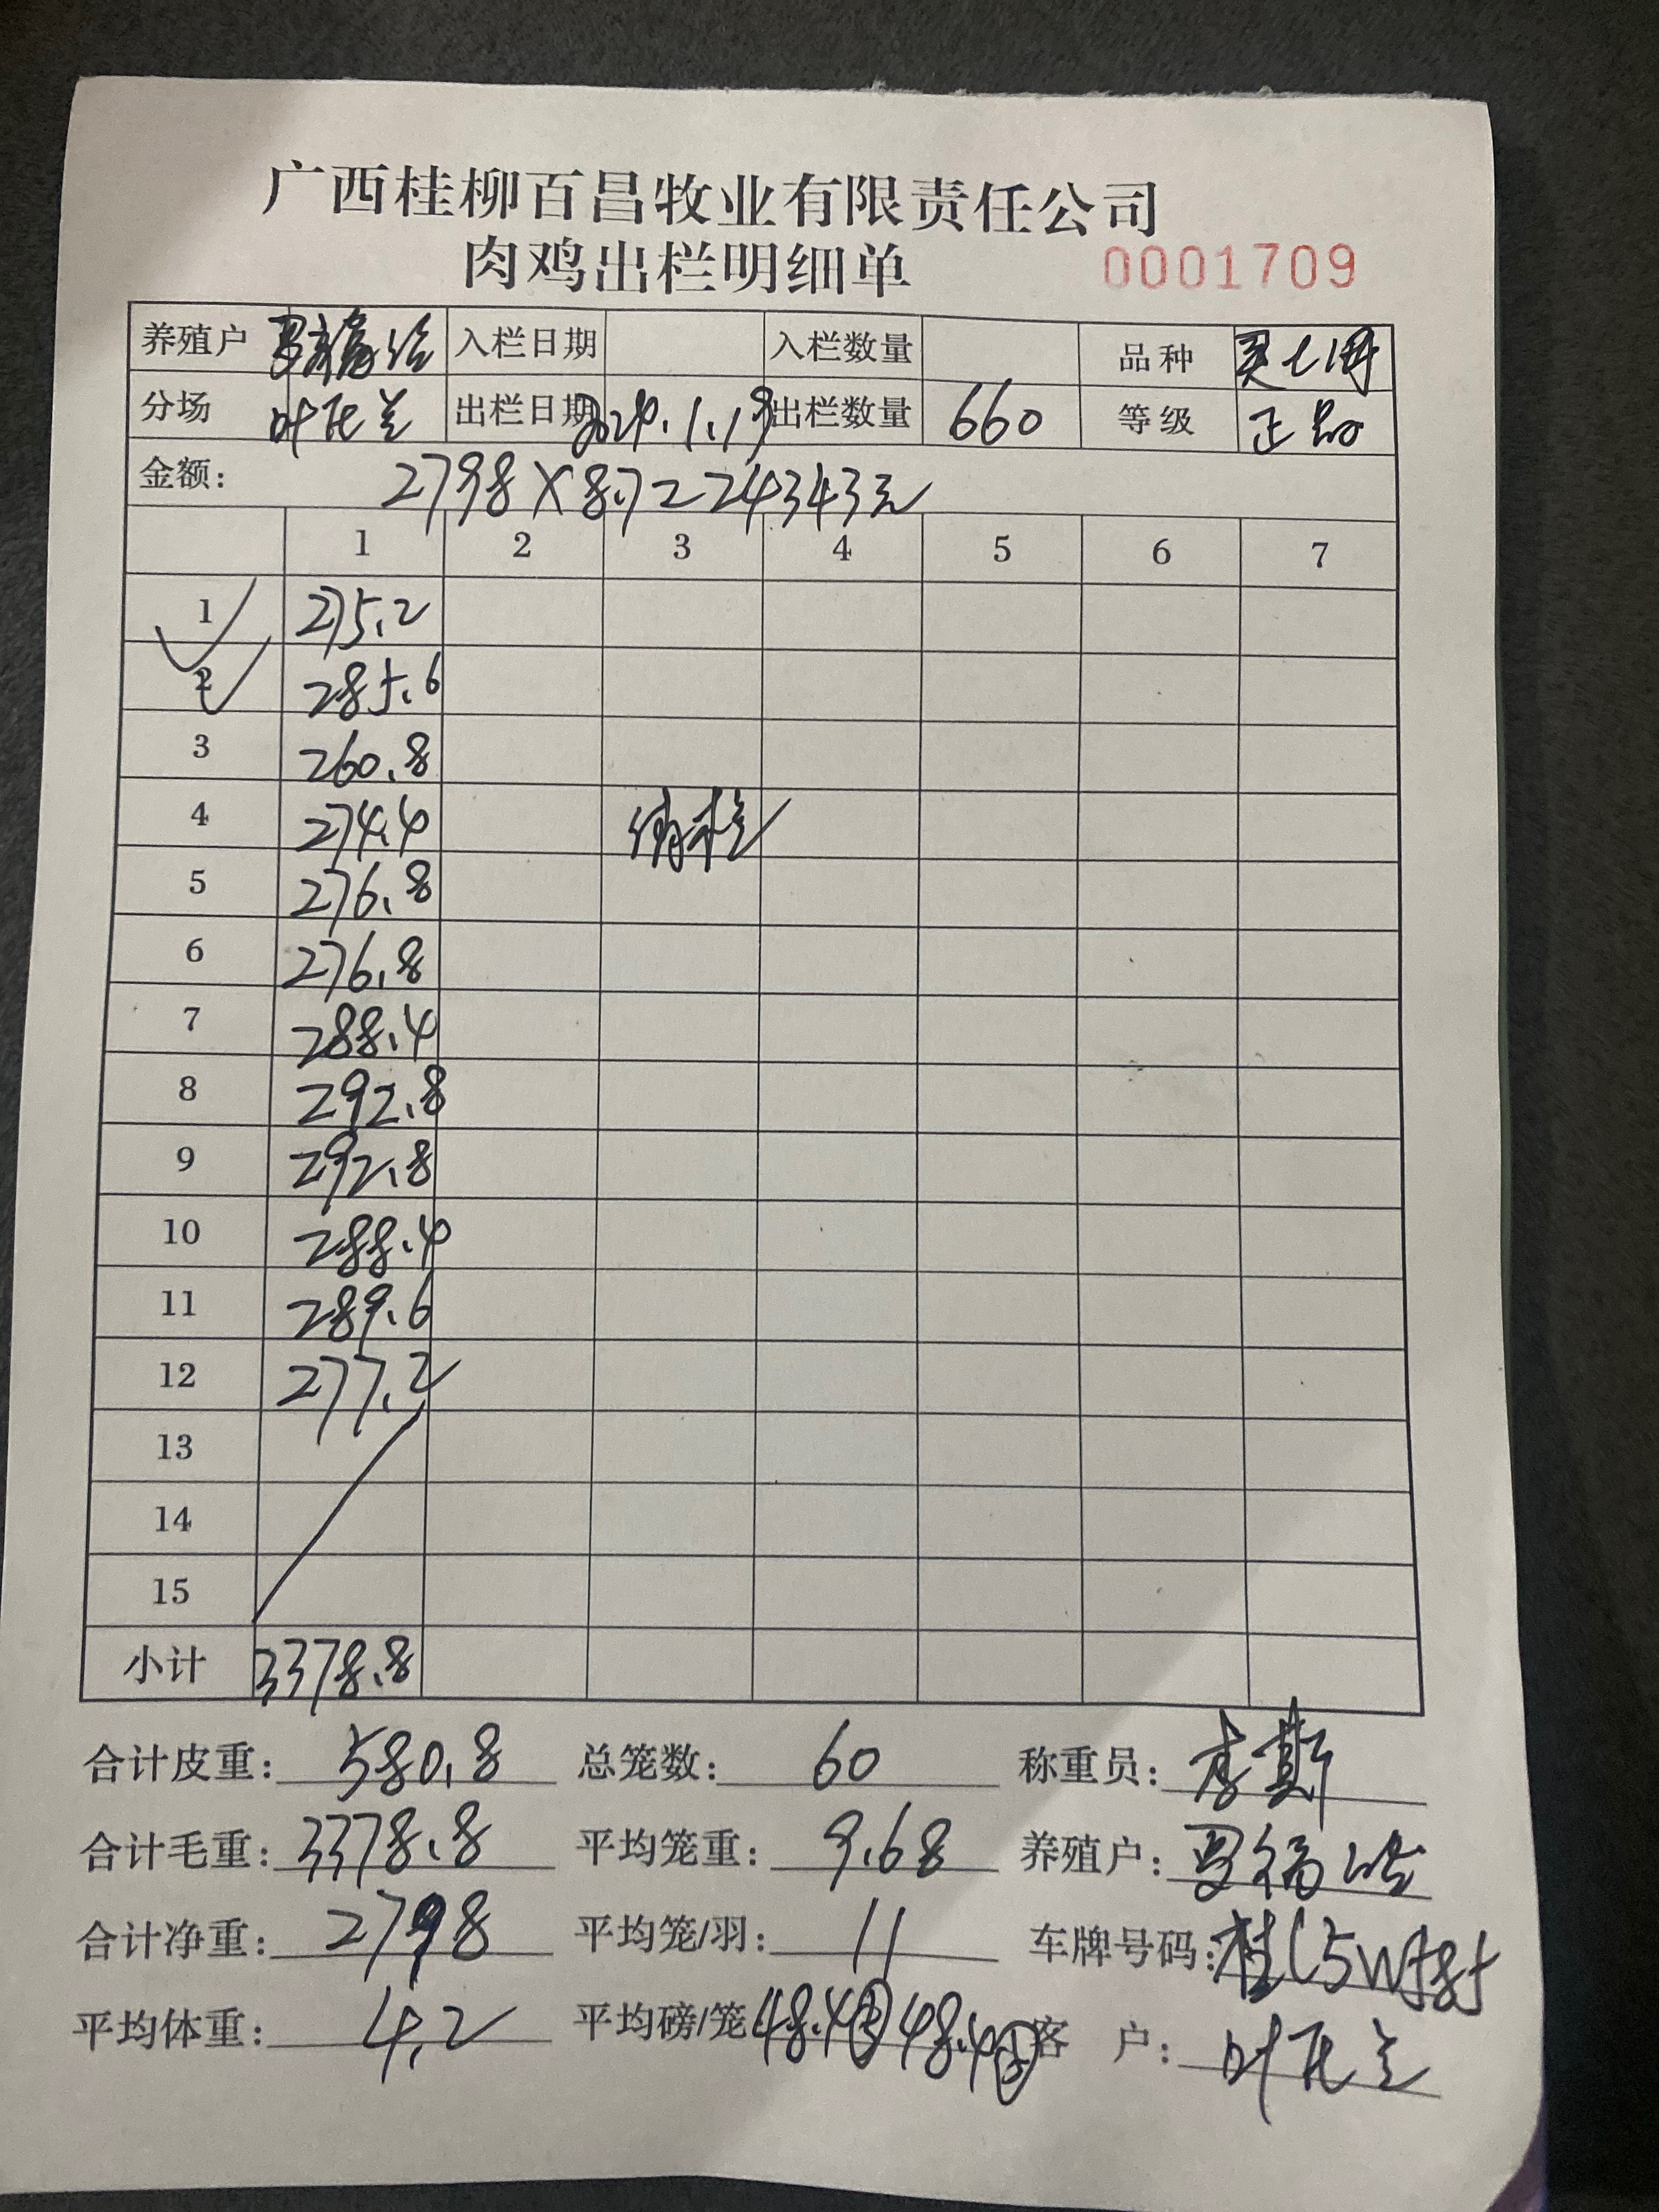 广西桂柳百昌牧业有限责任公司
肉鸡出栏明细单 0001709
养殖户 入栏日期 入栏数量 品种
分场 叶氏兰 出栏日期 2024.1.19 出栏数量 660 等级 正品
金额: 2798×8.7=24343元
1 2 3 4 5 6 7
1 275.2
2 285.6
3 260.8
4 274.4
5 276.8
6 276.8
7 288.4
8 292.8
9 292.8
10 288.4
11 289.6
12 277.2
13
14
15
小计 3378.8
合计皮重: 580.8 总笼数: 60 称重员: 李斯
合计毛重: 3378.8 平均笼重: 9.68 养殖户:
合计净重: 2798 平均笼/羽: 11 车牌号码:
平均体重: 4.2 平均磅/笼 48.4 48.4 客 户: 叶氏兰